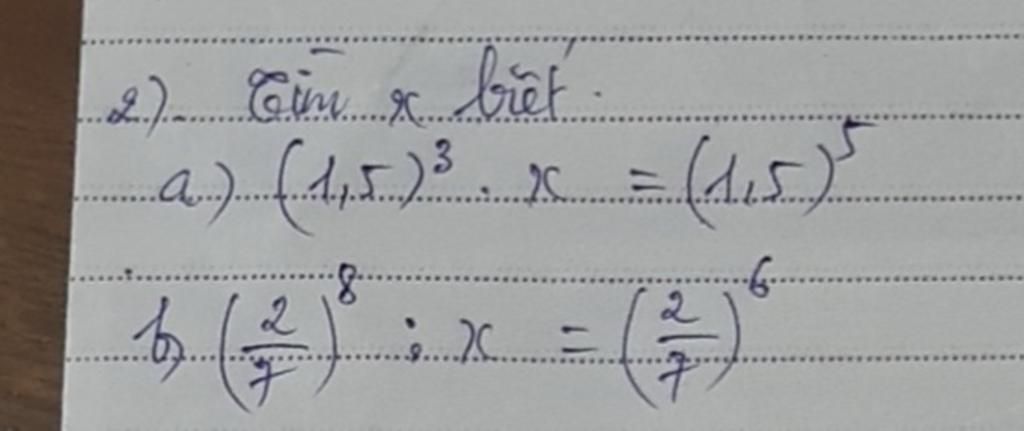 2). Tìm x biết.
a) (1,5)³ . x = (1,5)⁵
b) (2/7)⁸ : x = (2/7)⁶